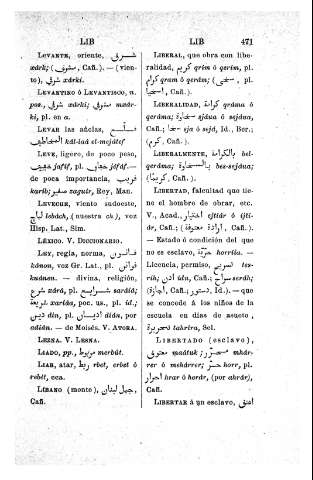 LIB LIB 471
LEVANTE, oriente, شرق
xárk; (مشرق, Cañ.). — (vien-
to), شرقى xárkí.
LEVANTINO ó LEVANTISCO, u.
pos., شرقى xárkí; مشرقى maxár-
ki, pl. en a.
LEVAR las añclas, قلع
المخاطيف kál-laá el-mojátef
LEVE, ligero, de poco peso,
خفيف jafíf, pl. خفاف jifáf. —
de poca importancia, قريب
karíb; صغير zaguir, Rey, Man.
LEVECHE, viento sudoeste,
لباج labách, (nuestra ch), voz
Hisp. Lat., Sim.
LÉXICO. V. DICCIONARIO.
LEY, regla, norma, قانون
kánon, voz Gr. Lat., pl. قوانن
kuánen. — divina, religion,
شرع xárá, pl. شرايع xaráiâ;
شريعة xaríâa, poc. us., pl. id.;
دين din, pl. اديان adián, por
edién. — de Moisés. V. ATORA.
LEZNA. V. LESNA.
LIADO, pp., مربوط merbút.
LIAR, atar, ربط rbet, erbet ó
rebít, eca.
LÍBANO (monte), جبل لبنان,
Cañ.
LIBERAL, que obra con libe-
ralidad, كريم qrím ó qerím, pl.
كرام qram ó qerám; (سخى, pl.
اسخيا, Cañ.).
LIBERALIDAD, كرامة qráma ó
qeráma; سخاوة sjáua ó sejáua,
Cañ.; سخا sja ó sejá, Id., Ber.;
(كرم, Cañ.).
LIBERALMENTE, بالكرامة bel-
qeráma; بالسخاوة bes-sejáua;
(بكرم, Cañ.).
LIBERTAD, facultad que tie-
ne el hombre de obrar, etc.
V., Acad., اختيار ejtiár ó íjti-
ár, Cañ.; (ارادة معتوقة, Cañ.).
— Estado ó condicion del que
no es esclavo, حرية horríia. —
Licencia, permiso, تسريح tes-
ríh; اذن ídn, Cañ.; سراح seráh;
(اجازة, Cañ.; دستور, Id.). — que
se concede á los niños de la
escuela en días de asueto,
تحريرة tahríra, Sel.
LIBERTADO (esclavo),
معتوق maátuk; محرر mhár-
rer ó mehárrer; حر horr, pl.
احرار hrar ó horár, (por ahrár),
Cañ.
LIBERTAR á un esclavo, اعتق